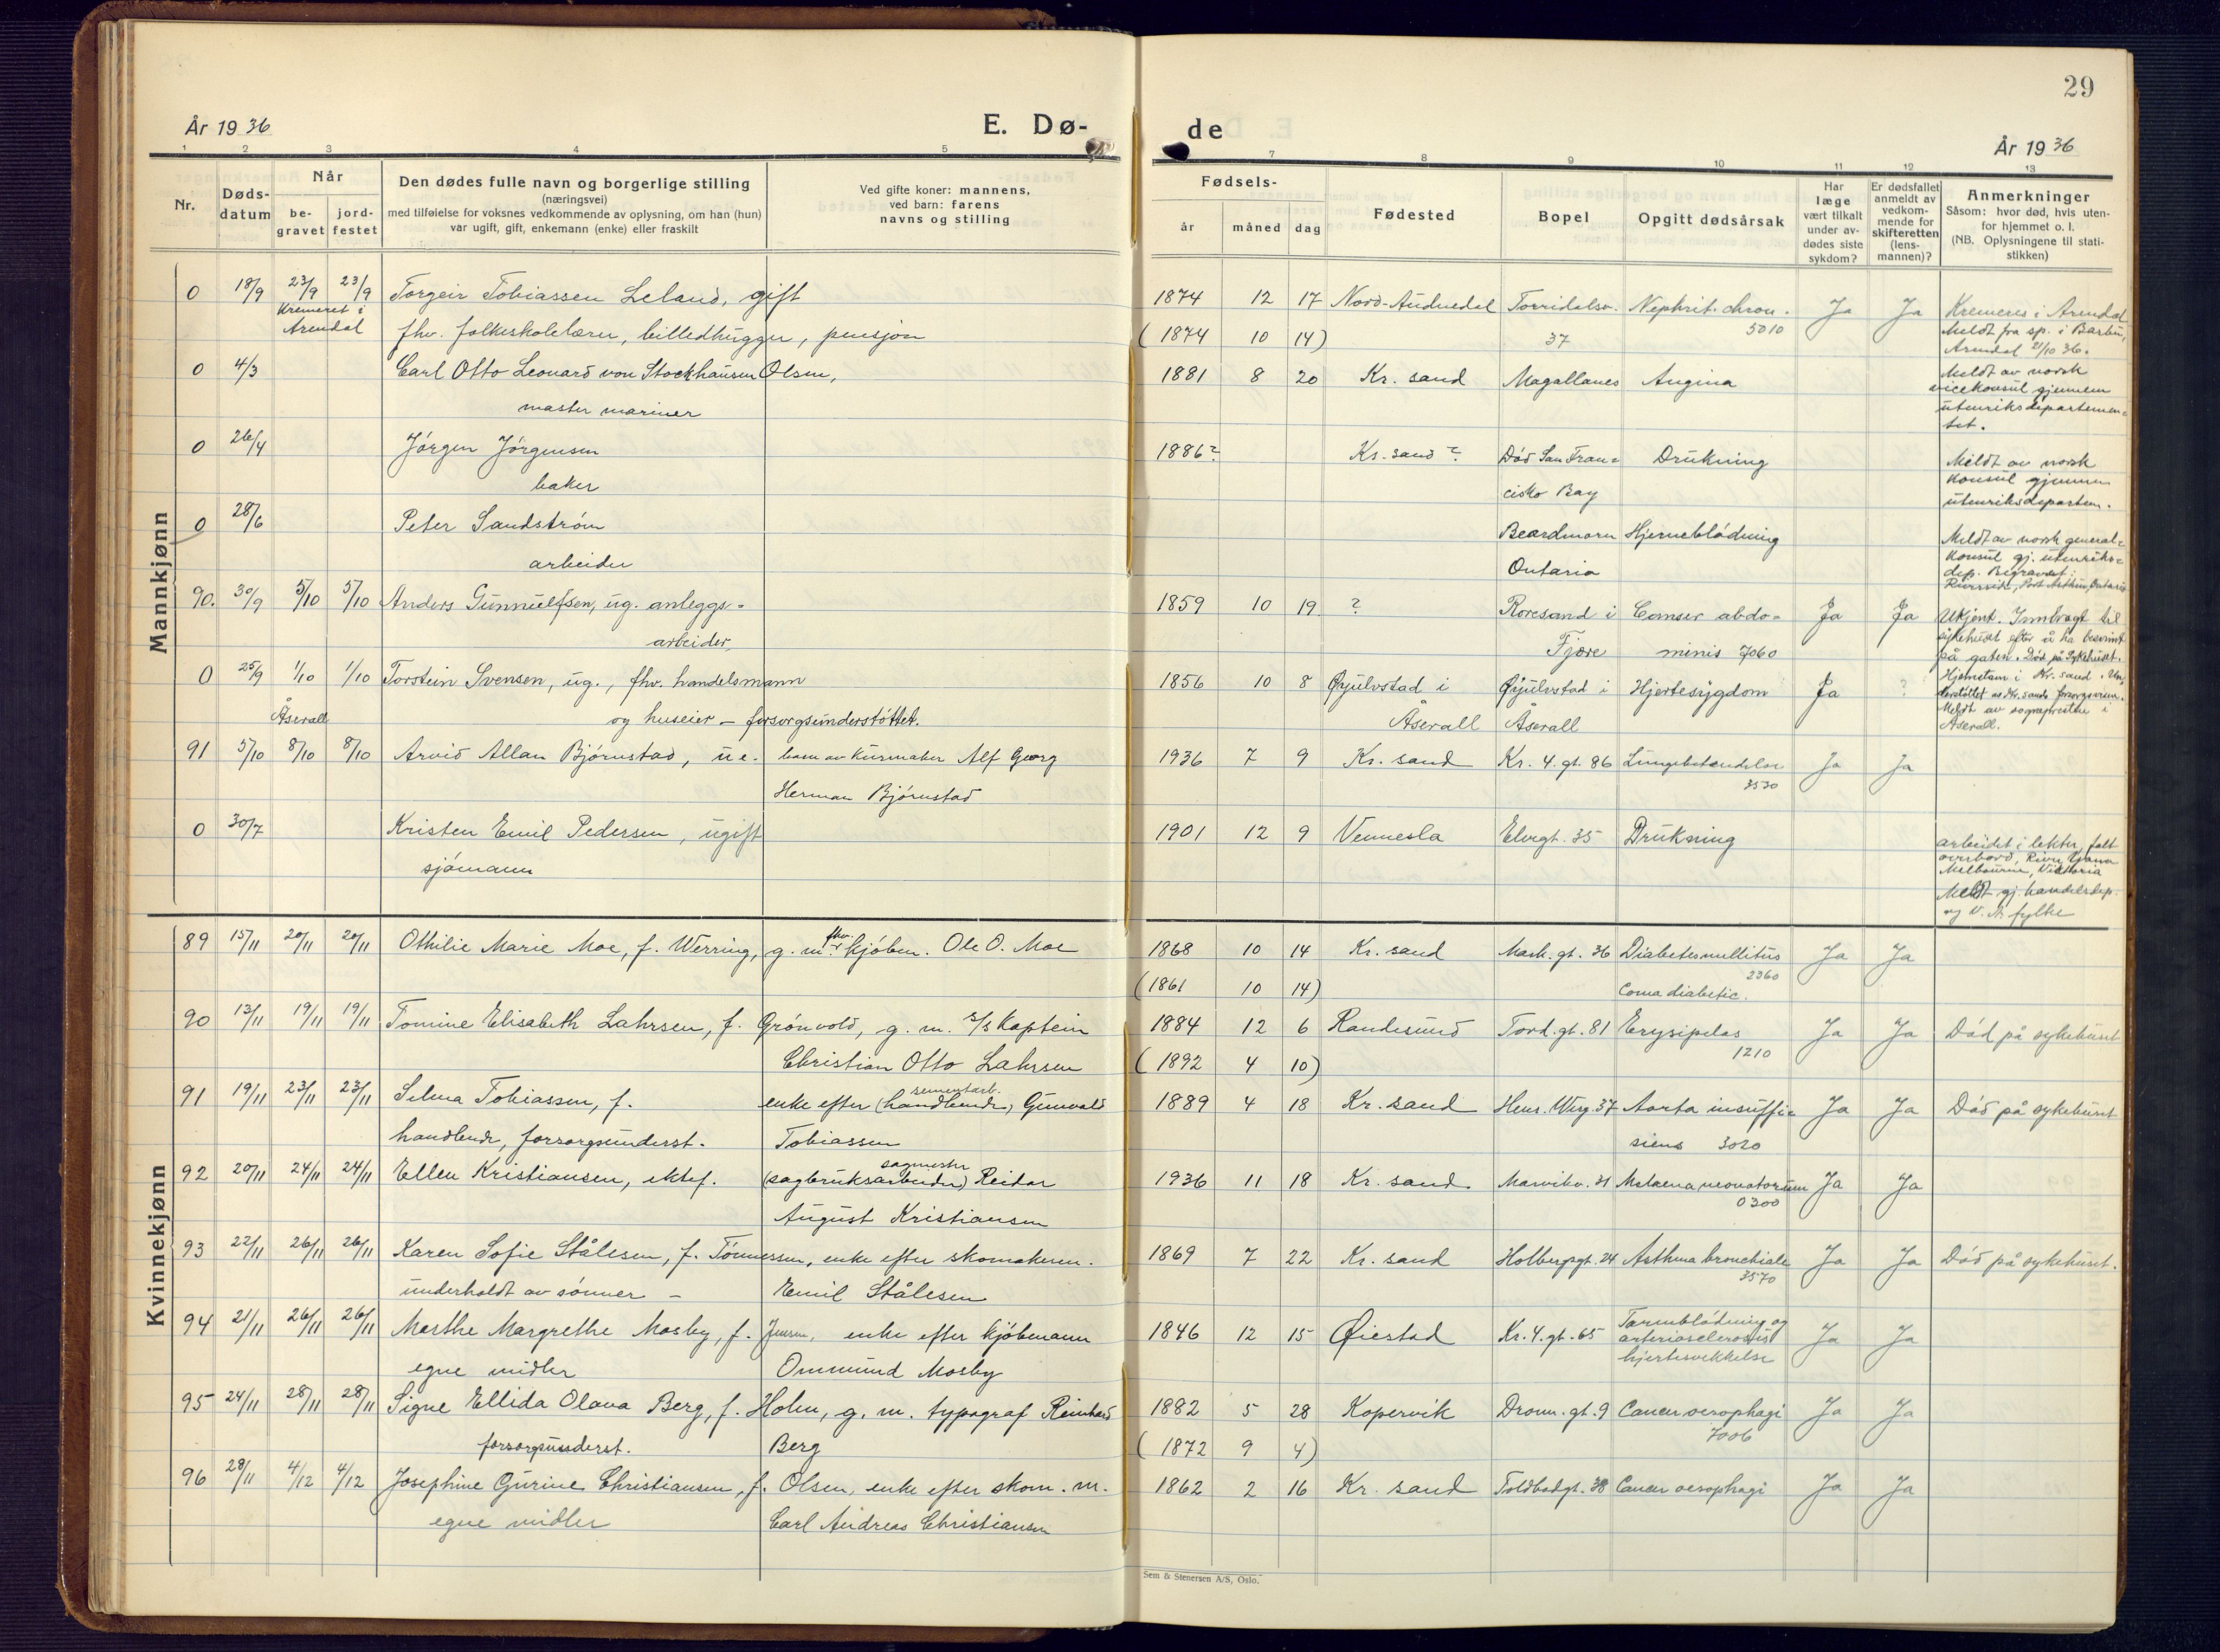 29
År 1936
E. Dø-
de
År 1936
1 2 3 4 5
7 8 9 10 11 12 13
Nr.
Døds-
datum
Når
be-
gravet
jord-
festet
Den dødes fulle navn og borgerlige stilling
(næringsvei)
med tilføielse for voksnes vedkommende av oplysning, om han (hun)
var ugift, gift, enkemann (enke) eller fraskilt
Ved gifte koner: mannens,
ved barn: farens
navns og stilling
Fødsels-
år måned dag
Fødested
Bopel
Opgitt dødsårsak
Har
læge
vært tilkalt
under av-
dødes siste
sykdom?
Er dødsfallet
anmeldt av
vedkom-
mende for
skifteretten
(lens-
mannen)?
Anmerkninger
Såsom: hvor død, hvis uten-
for hjemmet o. l.
(NB. Oplysningene til stati-
stikken)
Mannkjønn
0 18/9 23/9 23/9 Torgeir Tobiassen Leland, gift 1874 12 17 Nord-Audnedal Torridalsv. Nephrit. chron. Ja Ja Kremeres i Arendal
Kremeret i
Arendal fhv. folkeskolelærer, billedhugger, pensjon (1874 10 14) 37 5010 Meldt fra sp. i Barbu,
Arendal 21/10 36.
0 4/3 Carl Otto Leonard von Stockhausen Olsen, 1881 8 20 Kr. sand Magallanes Angina Meldt av norsk
vicekonsul gjennem
master mariner utenriksdepartemen-
tet.
0 26/4 Jørgen Jørgensen 1886? Kr. sand? Död San Fran- Drukning Meldt av norsk
baker cisko Bay konsul gjennem
utenriksdepartem.
0 28/6 Peter Sandström Beardmore Hjerneblödning Meldt av norsk general-
arbeider Ontario konsul gj. utenriks-
dep. Begravet:
Riverside, Port Arthur, Ontario
90. 30/9 5/10 5/10 Anders Gunnulfsen, ug. anleggs- 1859 10 19 ? Roresand i Cancer abdo- Ja Ja Ukjent. Innbragt til
arbeider, Fjære minis 7060 sykehuset efter å ha besvimt
på gaten. Död på Sykehuset.
0 25/9 1/10 1/10 Torstein Svensen, ug., fhv. handelsmann 1856 10 8 Øyulvstad i Øyulvstad i Hjertesygdom Ja ? Hjemstam i Kr. sand. Un-
derstöttet av Kr. sands forsorgsvesen.
Åserall og huseier - forsorgsunderstöttet. Åserall Åserall Meldt av sognepresten i
Åserall.
91 5/10 8/10 8/10 Arvid Allan Bjørnstad, u e. barn av kurvmaker Alf Georg 1936 7 9 Kr. sand Kr. 4. gt. 86 Lungebetendelse Ja Ja
Herman Bjørnstad 3530
0 30/7 Kristen Emil Pedersen, ugift 1901 12 9 Vennesla Elvegt. 35 Drukning arbeidet i lekter, falt
sjömann overbord, River Yarra
Melbourne, Viktoria
Meldt gj. handelsdep.
og V. A. fylke
Kvinnekjønn
89 15/11 20/11 20/11 Othilie Marie Moe, f. Werring, g. m. fhv. kjöbm. Ole O. Moe 1868 10 14 Kr. sand Mark. gt. 36 Diabetes mellitus Ja Ja
(1861 10 14) 2360
Coma diabetic.
90 13/11 19/11 19/11 Tomine Elisabeth Lahrsen, f. Grönvold, g. m. s/s Kaptein 1884 12 6 Randesund Tord. gt. 81 Erysipelas Ja Ja Död på sykehuset
Christian Otto Lahrsen (1892 4 10) 1210
91 19/11 23/11 23/11 Selma Tobiassen, f. enke efter (handlende) sementarb. Gunvald 1889 4 18 Kr. sand Henr. Werg. 37 Aorta insuffi- Ja Ja Död på sykehuset
handlende, forsorgsunderst. Tobiassen siens 3020
92 20/11 24/11 24/11 Ellen Kristiansen, ektef. (sagbruksarbeider) sagmester Reidar 1936 11 18 Kr. sand Marvikv. 31 Melaena neonatorum Ja Ja
August Kristiansen 0300
93 22/11 26/11 26/11 Karen Sofie Stålesen, f. Tönnessen, enke efter skomakerm. 1869 7 22 Kr. sand Holbergsgt. 24 Asthma bronchiale Ja Ja Död på sykehuset.
underholdt av sönner - Emil Stålesen 3570
94 21/11 26/11 26/11 Marthe Margrethe Mosby, f. Jensen, enke efter kjöbmann 1846 12 15 Øiestad Kr. 4. gt. 65 Tarmblödning og Ja Ja
arteriosclerosis
egne midler Ommund Mosby hjertesvekkelse
95 24/11 28/11 28/11 Signe Ellida Olava Berg, f. Holm, g. m. typograf Reinhard 1882 5 28 Kopervik Dronn. gt. 9 Cancer oesophagi Ja Ja
forsorgsunderst. Berg (1872 9 4) 7006
96 28/11 4/12 4/12 Josephine Gurine Christiansen, f. Olsen, enke efter skom. m. 1862 2 16 Kr. sand Toldbodgt. 38 Cancer oesophagi Ja Ja
egne midler Carl Andreas Christiansen
Sem & Stenersen A/S, Oslo.